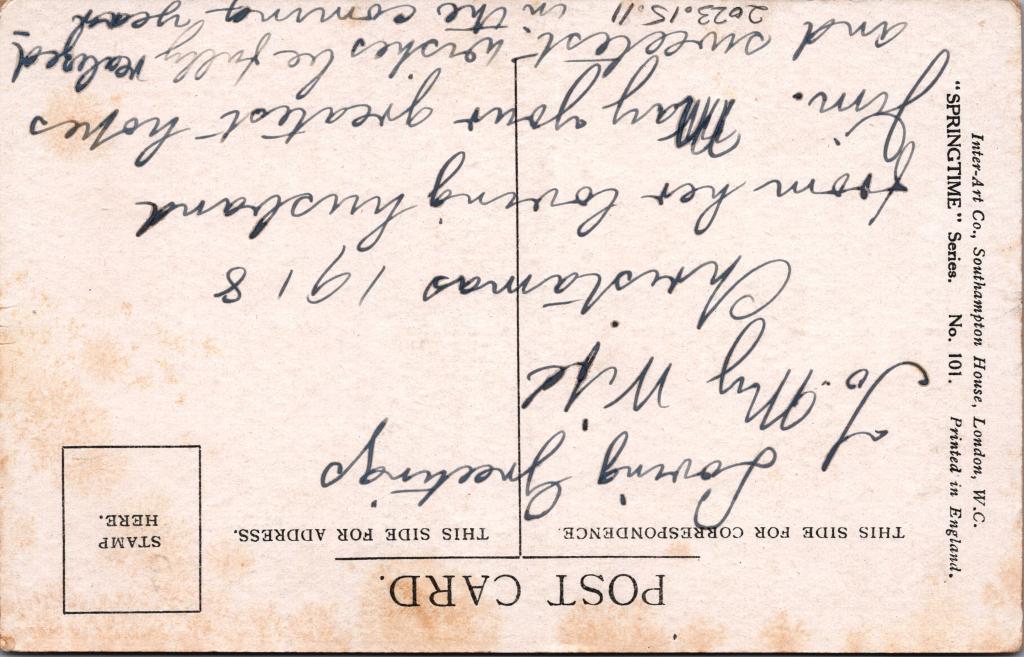 POST CARD.
THIS SIDE FOR CORRESPONDENCE.
THIS SIDE FOR ADDRESS.
STAMP
HERE.
Loving Greetings
To My Wife
Christamas 1918
from her loving husband
Jim. May your greatest hopes
and sweetest wishes be fully realized
in the coming year
2023.15.11
"SPRINGTIME" Series. No. 101. Printed in England.
Inter-Art Co., Southampton House, London, W.C.